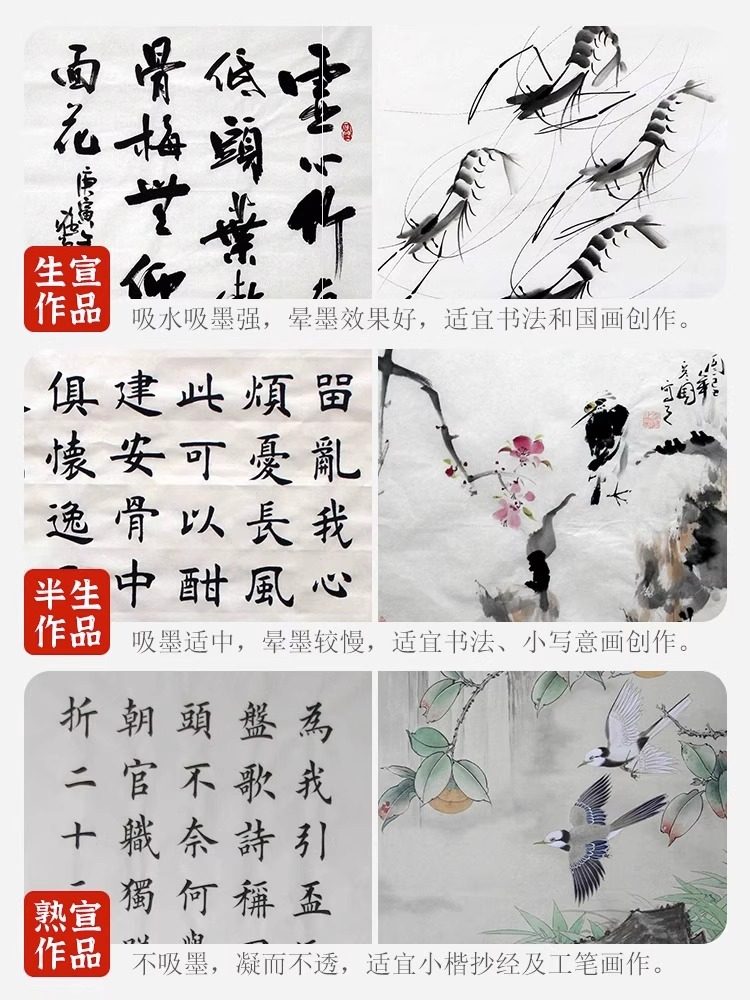 虛心竹有
低頭葉傲
骨梅無仰
面花
庚寅
生宣
作品
吸水吸墨强，晕墨效果好，适宜书法和国画创作。
留亂我心
煩憂長風
此可以酣
建安骨中
俱懷逸
半生
作品
吸墨适中，晕墨较慢，适宜书法、小写意画创作。
為我引盃
盤歌詩稱
頭不奈何
朝官職獨
折二十
熟宣
作品
不吸墨，凝而不透，适宜小楷抄经及工笔画作。